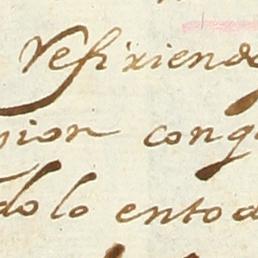 refiriendo
nion conq
dolo entod